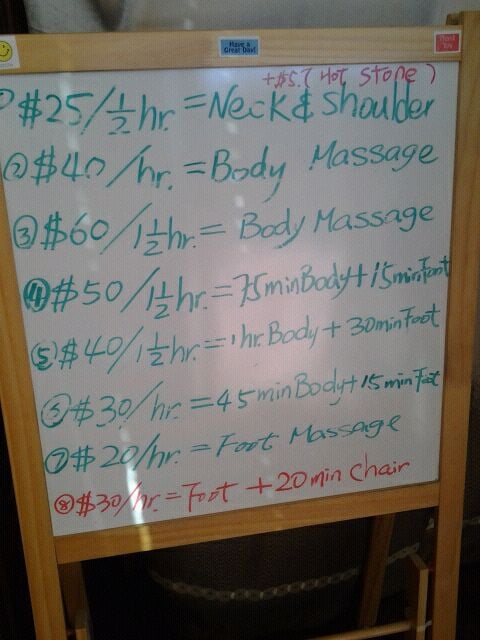 Have a Great Day!
Thank You
+$5. (Hot Stone)
① $25/½hr. = Neck & Shoulder
② $40/hr. = Body Massage
③ $60/1½hr. = Body Massage
④ $50/1½hr. = 75minBody + 15minFoot
⑤ $40/1½hr. = 1hr.Body + 30minFoot
⑤ $30/hr. = 45minBody + 15minFoot
⑦ $20/hr. = Foot Massage
⑧ $30/hr. = Foot + 20min Chair